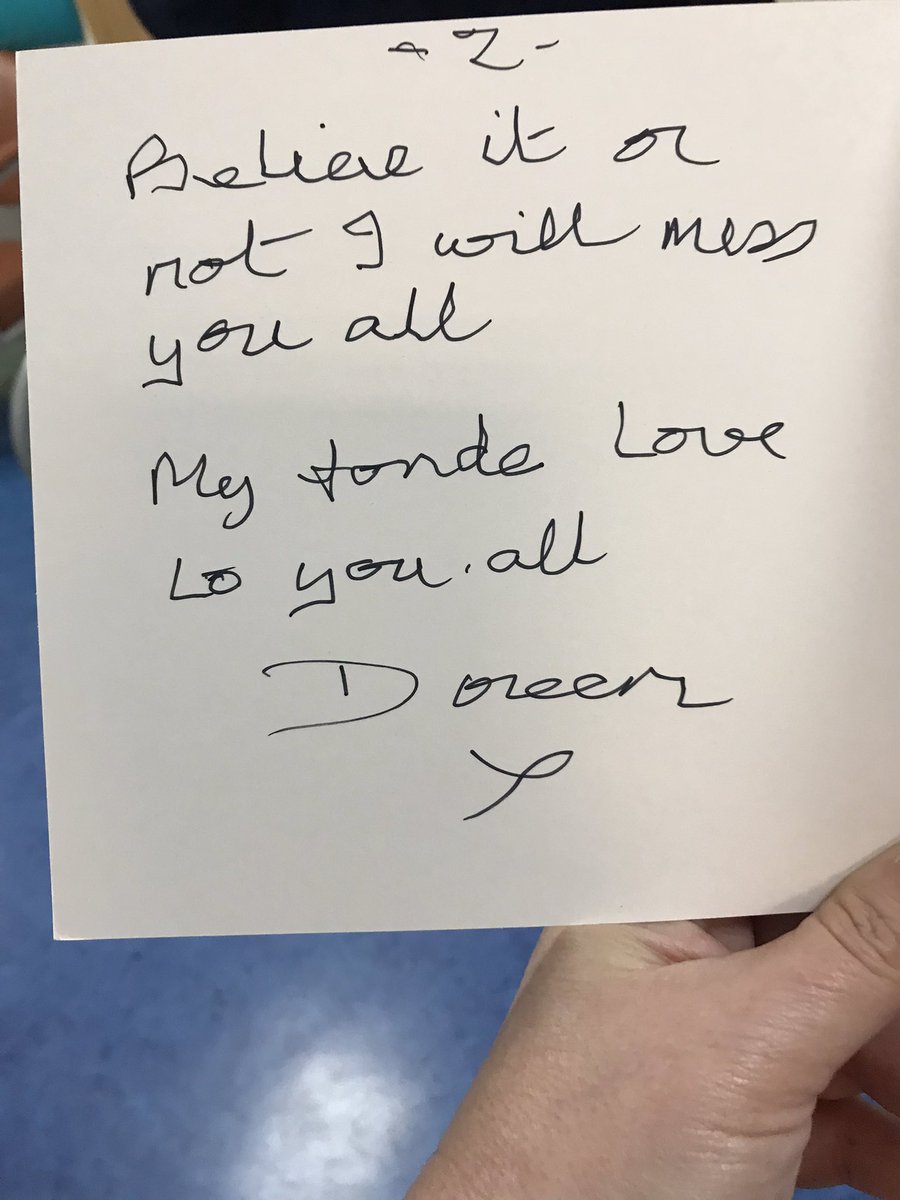 - 2 -
Believe it or
not I will mess
you all
My tonde Love
to you all
Doreen
x